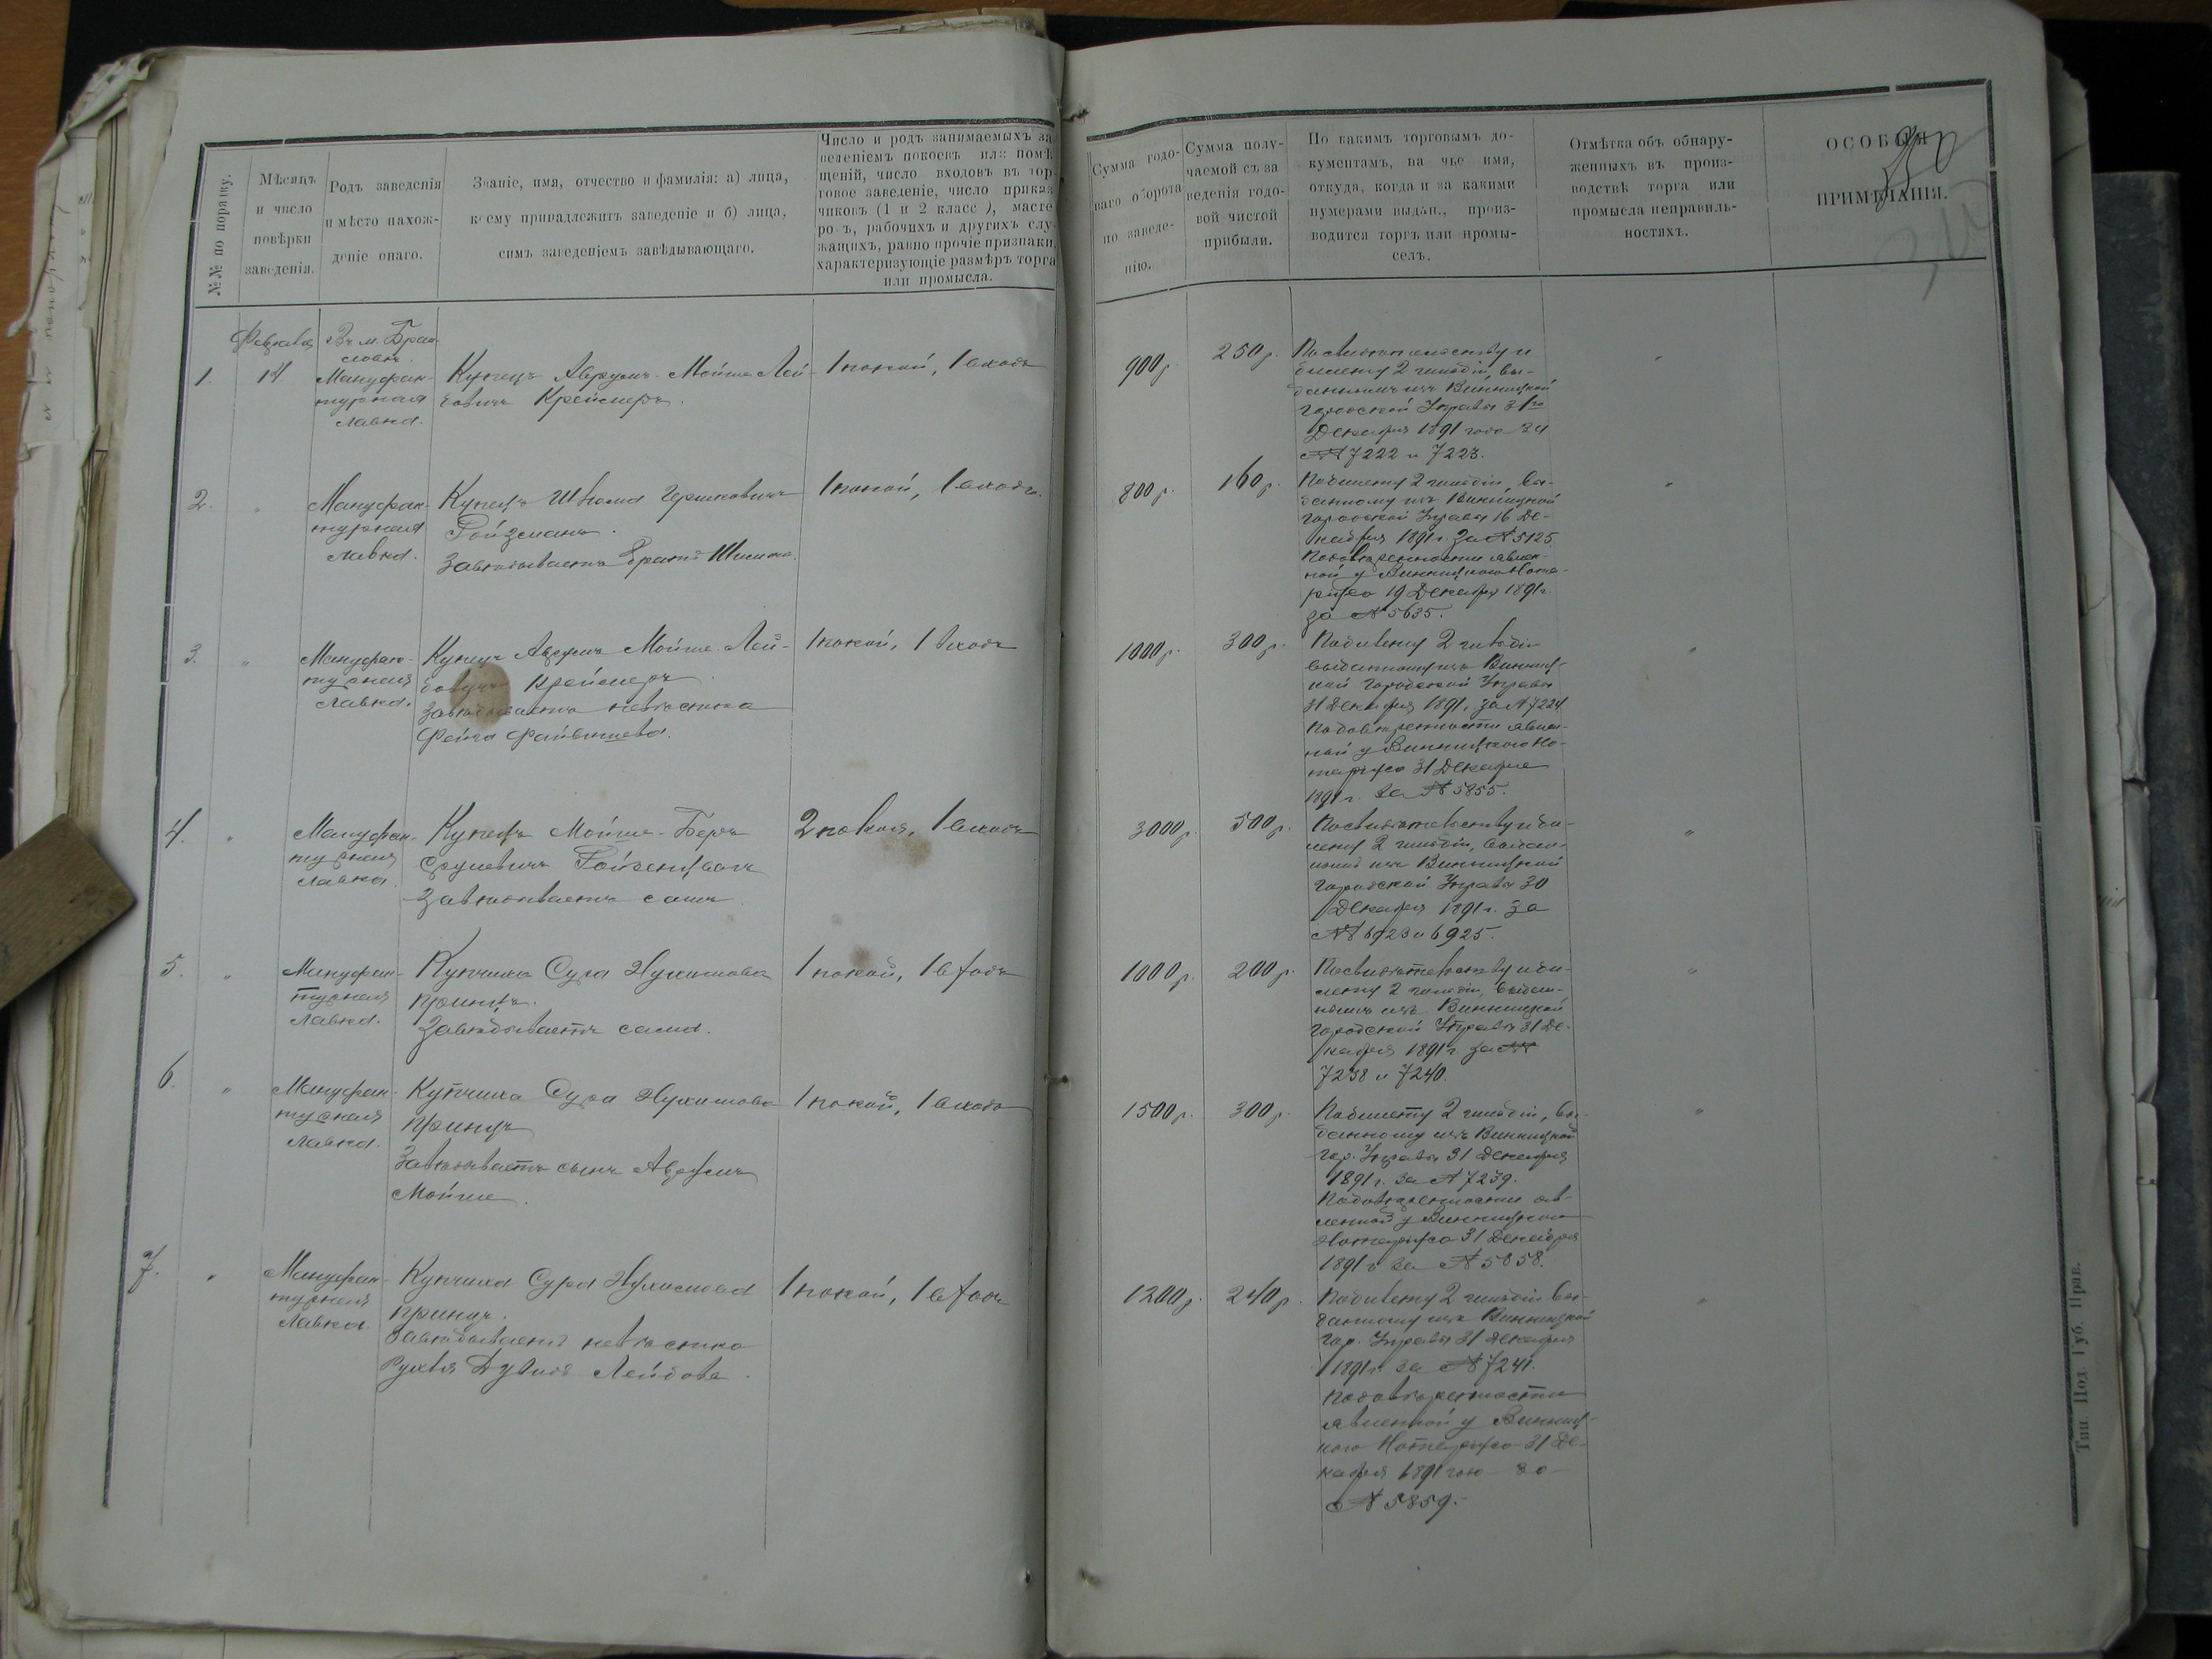 №№ по порядку.
Мѣсяцъ
и число
повѣрки
заведенія.
Родъ заведенія
и мѣсто нахож-
деніе онаго.
Званіе, имя, отчество и фамилія: а) лица,
коему принадлежитъ заведеніе и б) лица,
симъ заведеніемъ завѣдывающаго.
Число и родъ занимаемыхъ за
веденіемъ покоевъ или помѣ
щеній, число входовъ въ тор
говое заведеніе, число приказ
чиковъ (1 и 2 класс ), масте
ро ъ, рабочихъ и другихъ слу
жащихъ, равно прочіе признаки,
характеризующіе размѣръ торга
или промысла.
Сумма годо-
ваго оборота
по заведе-
нію.
Сумма полу-
чаемой съ за
веденія годо-
вой чистой
прибыли.
По какимъ торговымъ до-
кументамъ, на чье имя,
откуда, когда и за какими
нумерами выдан., произ-
водится торгъ или промы-
селъ.
Отмѣтка объ обнару-
женныхъ въ произ-
водствѣ торга или
промысла неправиль-
ностяхъ.
ОСОБЫЯ
ПРИМѢЧАНІЯ.
Февраля
Въ м. Браи-
ловѣ.
1.
14.
Мануфак-
турная
лавка.
Купецъ Аврумъ-Мойше Лей-
бовичъ Крейнеръ.
1 покой, 1 входъ
900 р.
250 р.
По свидѣтельству и
билету 2 гильдіи, вы-
даннымъ изъ Винницкой
Городской Управы 31го
Декабря 1891 года за
№№ 7222 и 7223.
2.
"
Мануфак-
турная
лавка.
Купецъ Шлема Гершковичъ
Ройзманъ.
Завѣдываетъ братъ Шимонъ.
1 покой, 1 входъ.
800 р.
160 р.
По билету 2 гильдіи, вы-
данному изъ Винницкой
Городской Управы 16 Де-
кабря 1891 г. за № 5125
По довѣренности явлен-
ной у Винницкаго Нота-
ріуса 19 Декабря 1891 г.
за № 5635.
3.
"
Мануфак-
турная
лавка.
Купецъ Аврумъ Мойше Лей-
бовичъ Крейнеръ
Завѣдываетъ невѣстка
Фейга Файвишева.
1 покой, 1 входъ
1000 р.
300 р.
По билету 2 гильдіи
выданному изъ Винниц-
кой Городской Управы
31 Декабря 1891 г. за № 7224
По довѣренности явлен-
ной у Винницкаго Но-
таріуса 31 Декабря
1891 г. за № 5855.
"
4.
"
Мануфак-
турная
лавка.
Купецъ Мойше-Беръ
Сруневичъ Ройзенцвагъ
Завѣдываетъ самъ
2 покоя, 1 входъ
3000 р.
500 р.
По свидѣтельству и би-
лету 2 гильдіи, выдан-
нымъ изъ Винницкой
Городской Управы 30
Декабря 1891 г. за
№№ 6923 и 6925.
"
5.
"
Мануфак-
турная
лавка.
Купчиха Сура Нухимова
Принцъ.
Завѣдываетъ сама.
1 покой, 1 входъ
1000 р.
200 р.
По свидѣтельству и би-
лету 2 гильдіи, выдан-
нымъ изъ Винницкой
Городской Управы 31 Де-
кабря 1891 г. за №№
7238 и 7240.
"
6.
"
Мануфак-
турная
лавка.
Купчиха Сура Нухимова
Принцъ
Завѣдываетъ сынъ Аврумъ
Мойше.
1 покой, 1 входъ
1500 р.
300 р.
По билету 2 гильдіи, вы-
данному изъ Винницкой
гор. Управы 31 Декабря
1891 г. за № 7239.
По довѣренности яв-
ленной у Винницкаго
Нотаріуса 31 Декабря
1891 г. за № 5858.
"
7.
"
Мануфак-
турная
лавка.
Купчиха Сура Нухимова
Принцъ.
Завѣдываетъ невѣстка
Рухля Лейбова.
1 покой, 1 входъ
1200 р.
240 р.
По билету 2 гильдіи вы-
данному изъ Винницкой
гор. Управы 31 Декабря
1891 г. за № 7241.
По довѣренности
явленной у Винниц-
каго Нотаріуса 31 Де-
кабря 1891 года за
№ 5859.
Тип. Под. Губ. Прав.